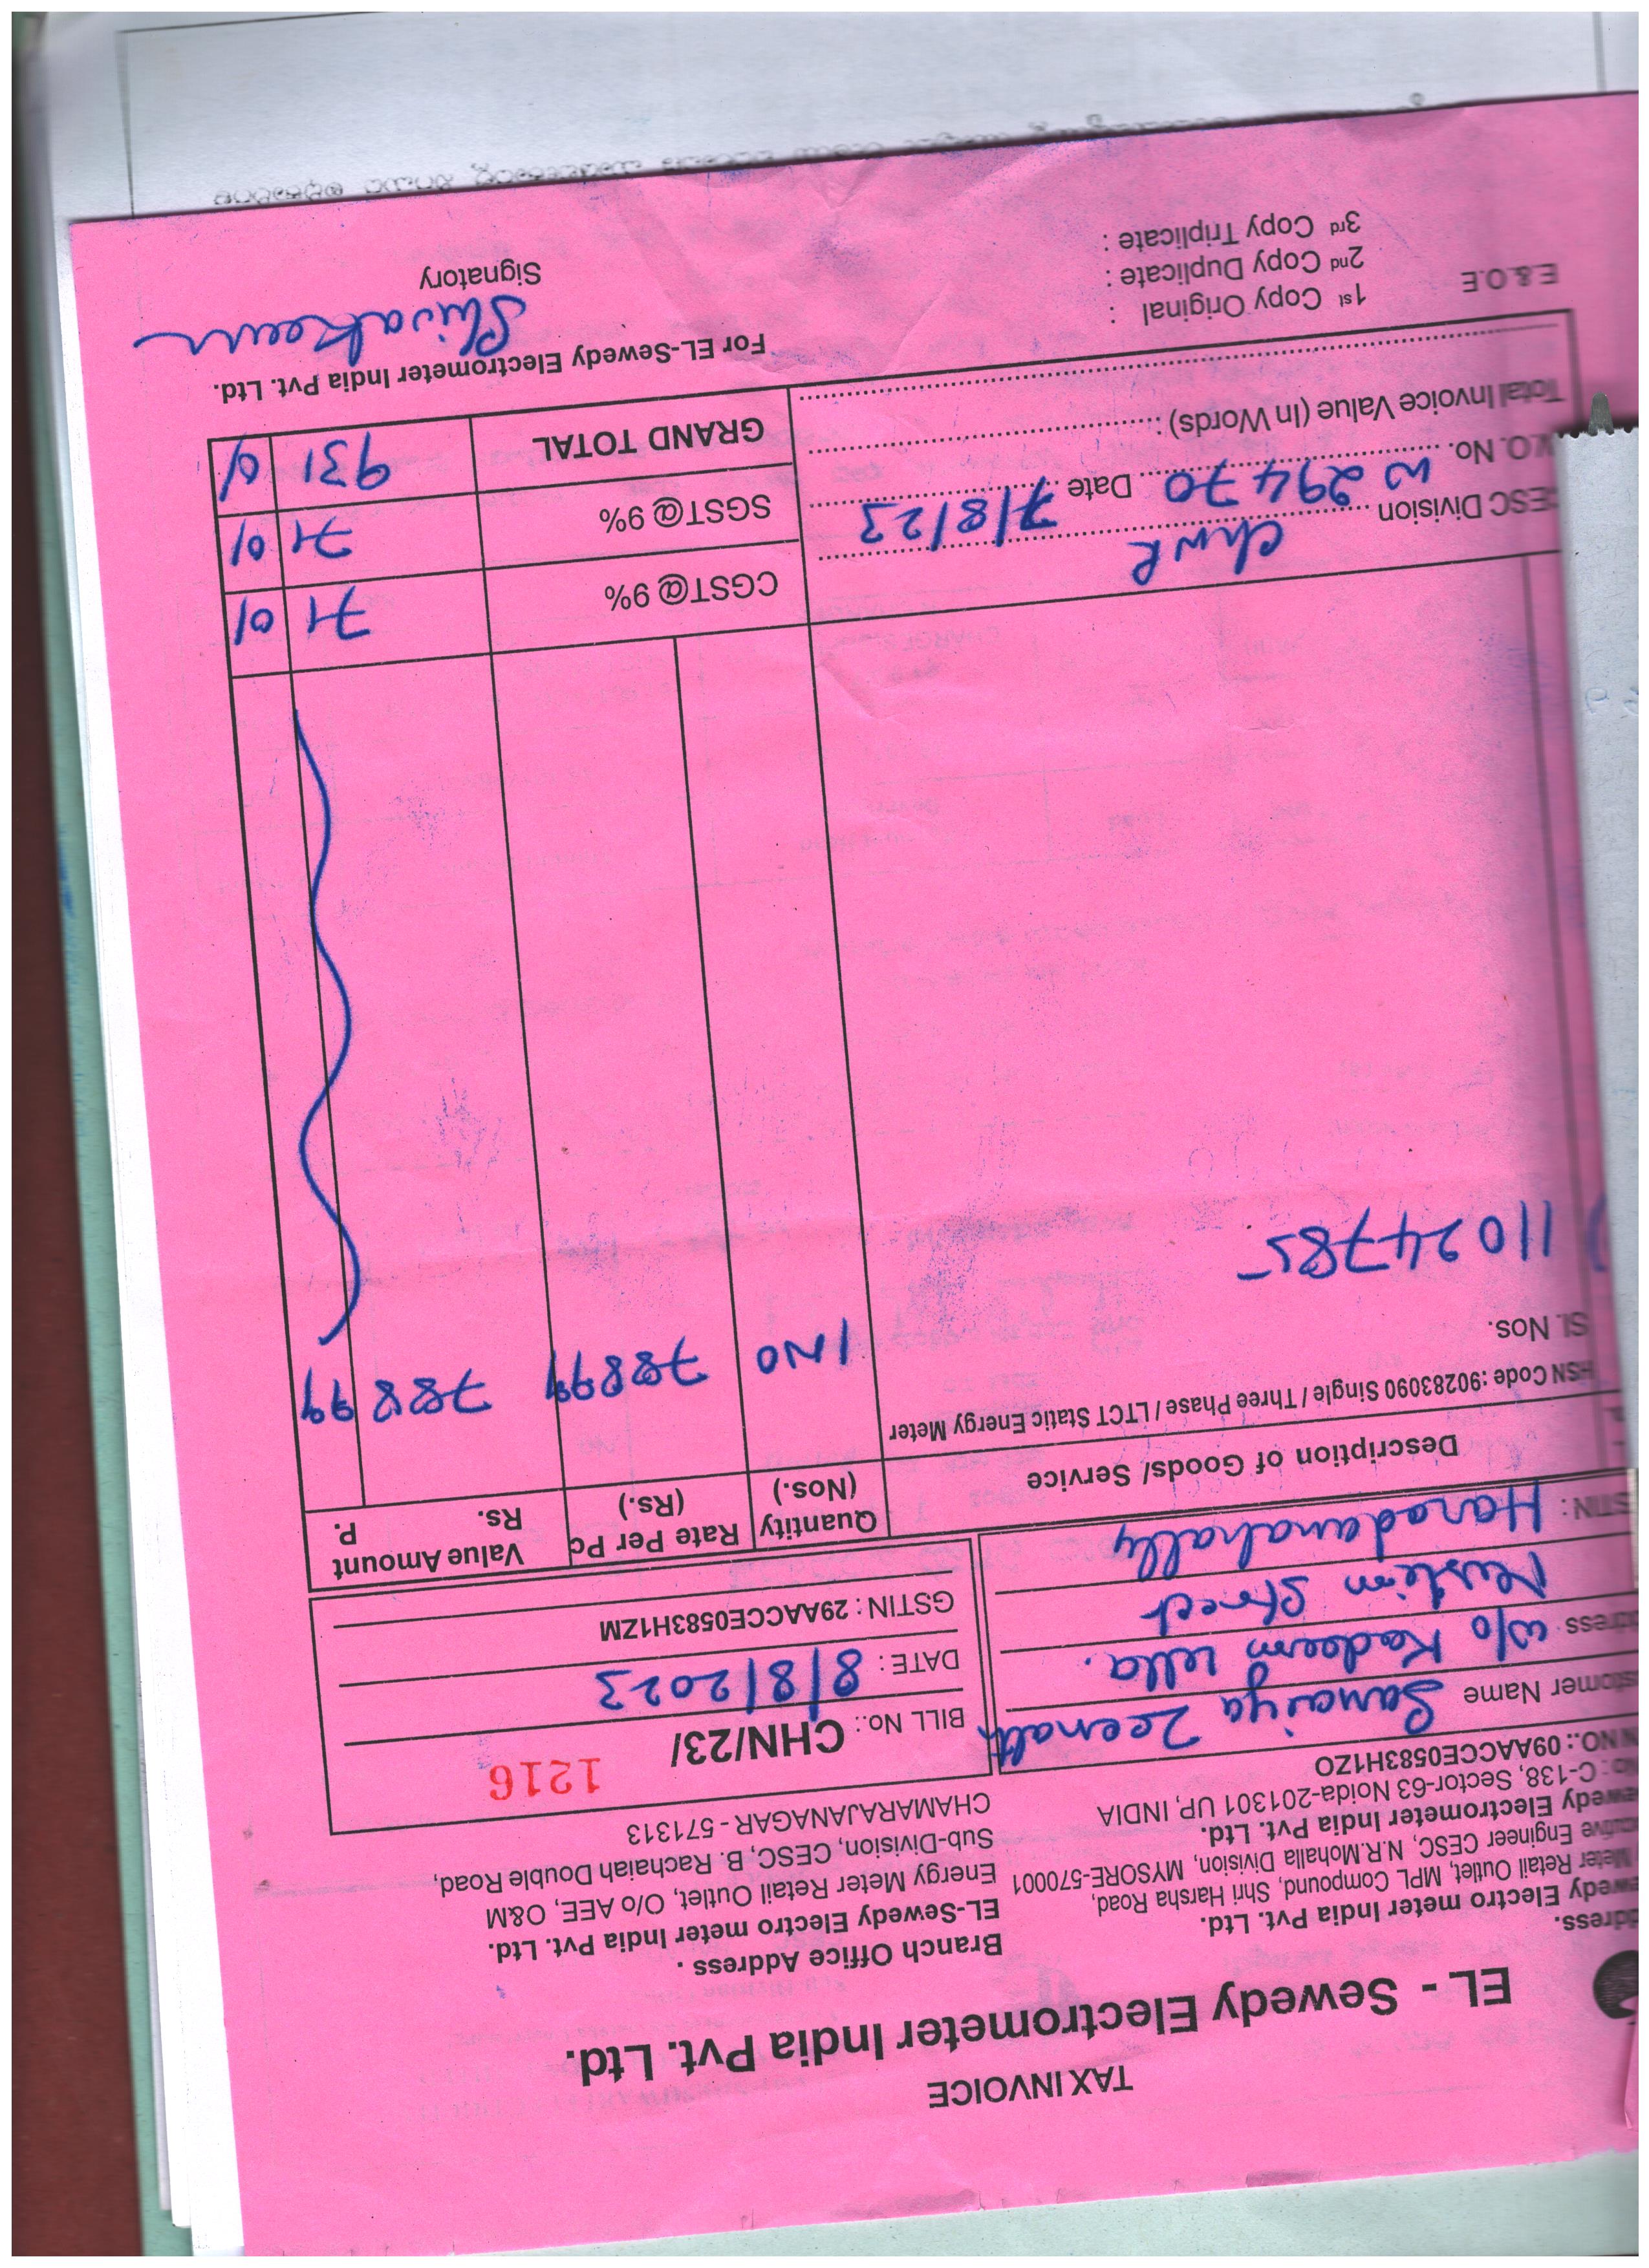 TAX INVOICE
EL - Sewedy Electrometer India Pvt. Ltd.
ddress.
ewedy Electro meter India Pvt. Ltd.
Meter Retail Outlet, MPL Compound, Shri Harsha Road,
cutive Engineer CESC, N.R.Mohalla Division, MYSORE-570001
ewedy Electrometer India Pvt. Ltd.
No: C-138, Sector-63 Noida-201301 UP, INDIA
N NO.: 09AACCE0583H1ZO
Branch Office Address .
EL-Sewedy Electro meter India Pvt. Ltd.
Energy Meter Retail Outlet, O/o AEE, O&M
Sub-Division, CESC, B. Rachaiah Double Road,
CHAMARAJANAGAR - 571313
stomer Name Zeenath
dress w/o Kadeem ulla.
Street
STIN : Haradanahally
BILL No.: CHN/23/ 1216
DATE : 8/8/2023
GSTIN : 29AACCE0583H1ZM
Description of Goods/ Service Quantity (Nos.) Rate Per Pc (Rs.) Value Amount Rs. P.
HSN Code :90283090 Single / Three Phase / LTCT Static Energy Meter
Sl. Nos. 1 NO 78899 788 99
11024785
CESC Division chnR
W.O. No. W 29470 Date 7/8/23
Total Invoice Value (In Words) :
CGST@ 9% 71 01
SGST@ 9% 71 01
GRAND TOTAL 931 01
E.& O.E
1st Copy Original :
2nd Copy Duplicate :
3rd Copy Triplicate :
For EL-Sewedy Electrometer India Pvt. Ltd.
Signatory